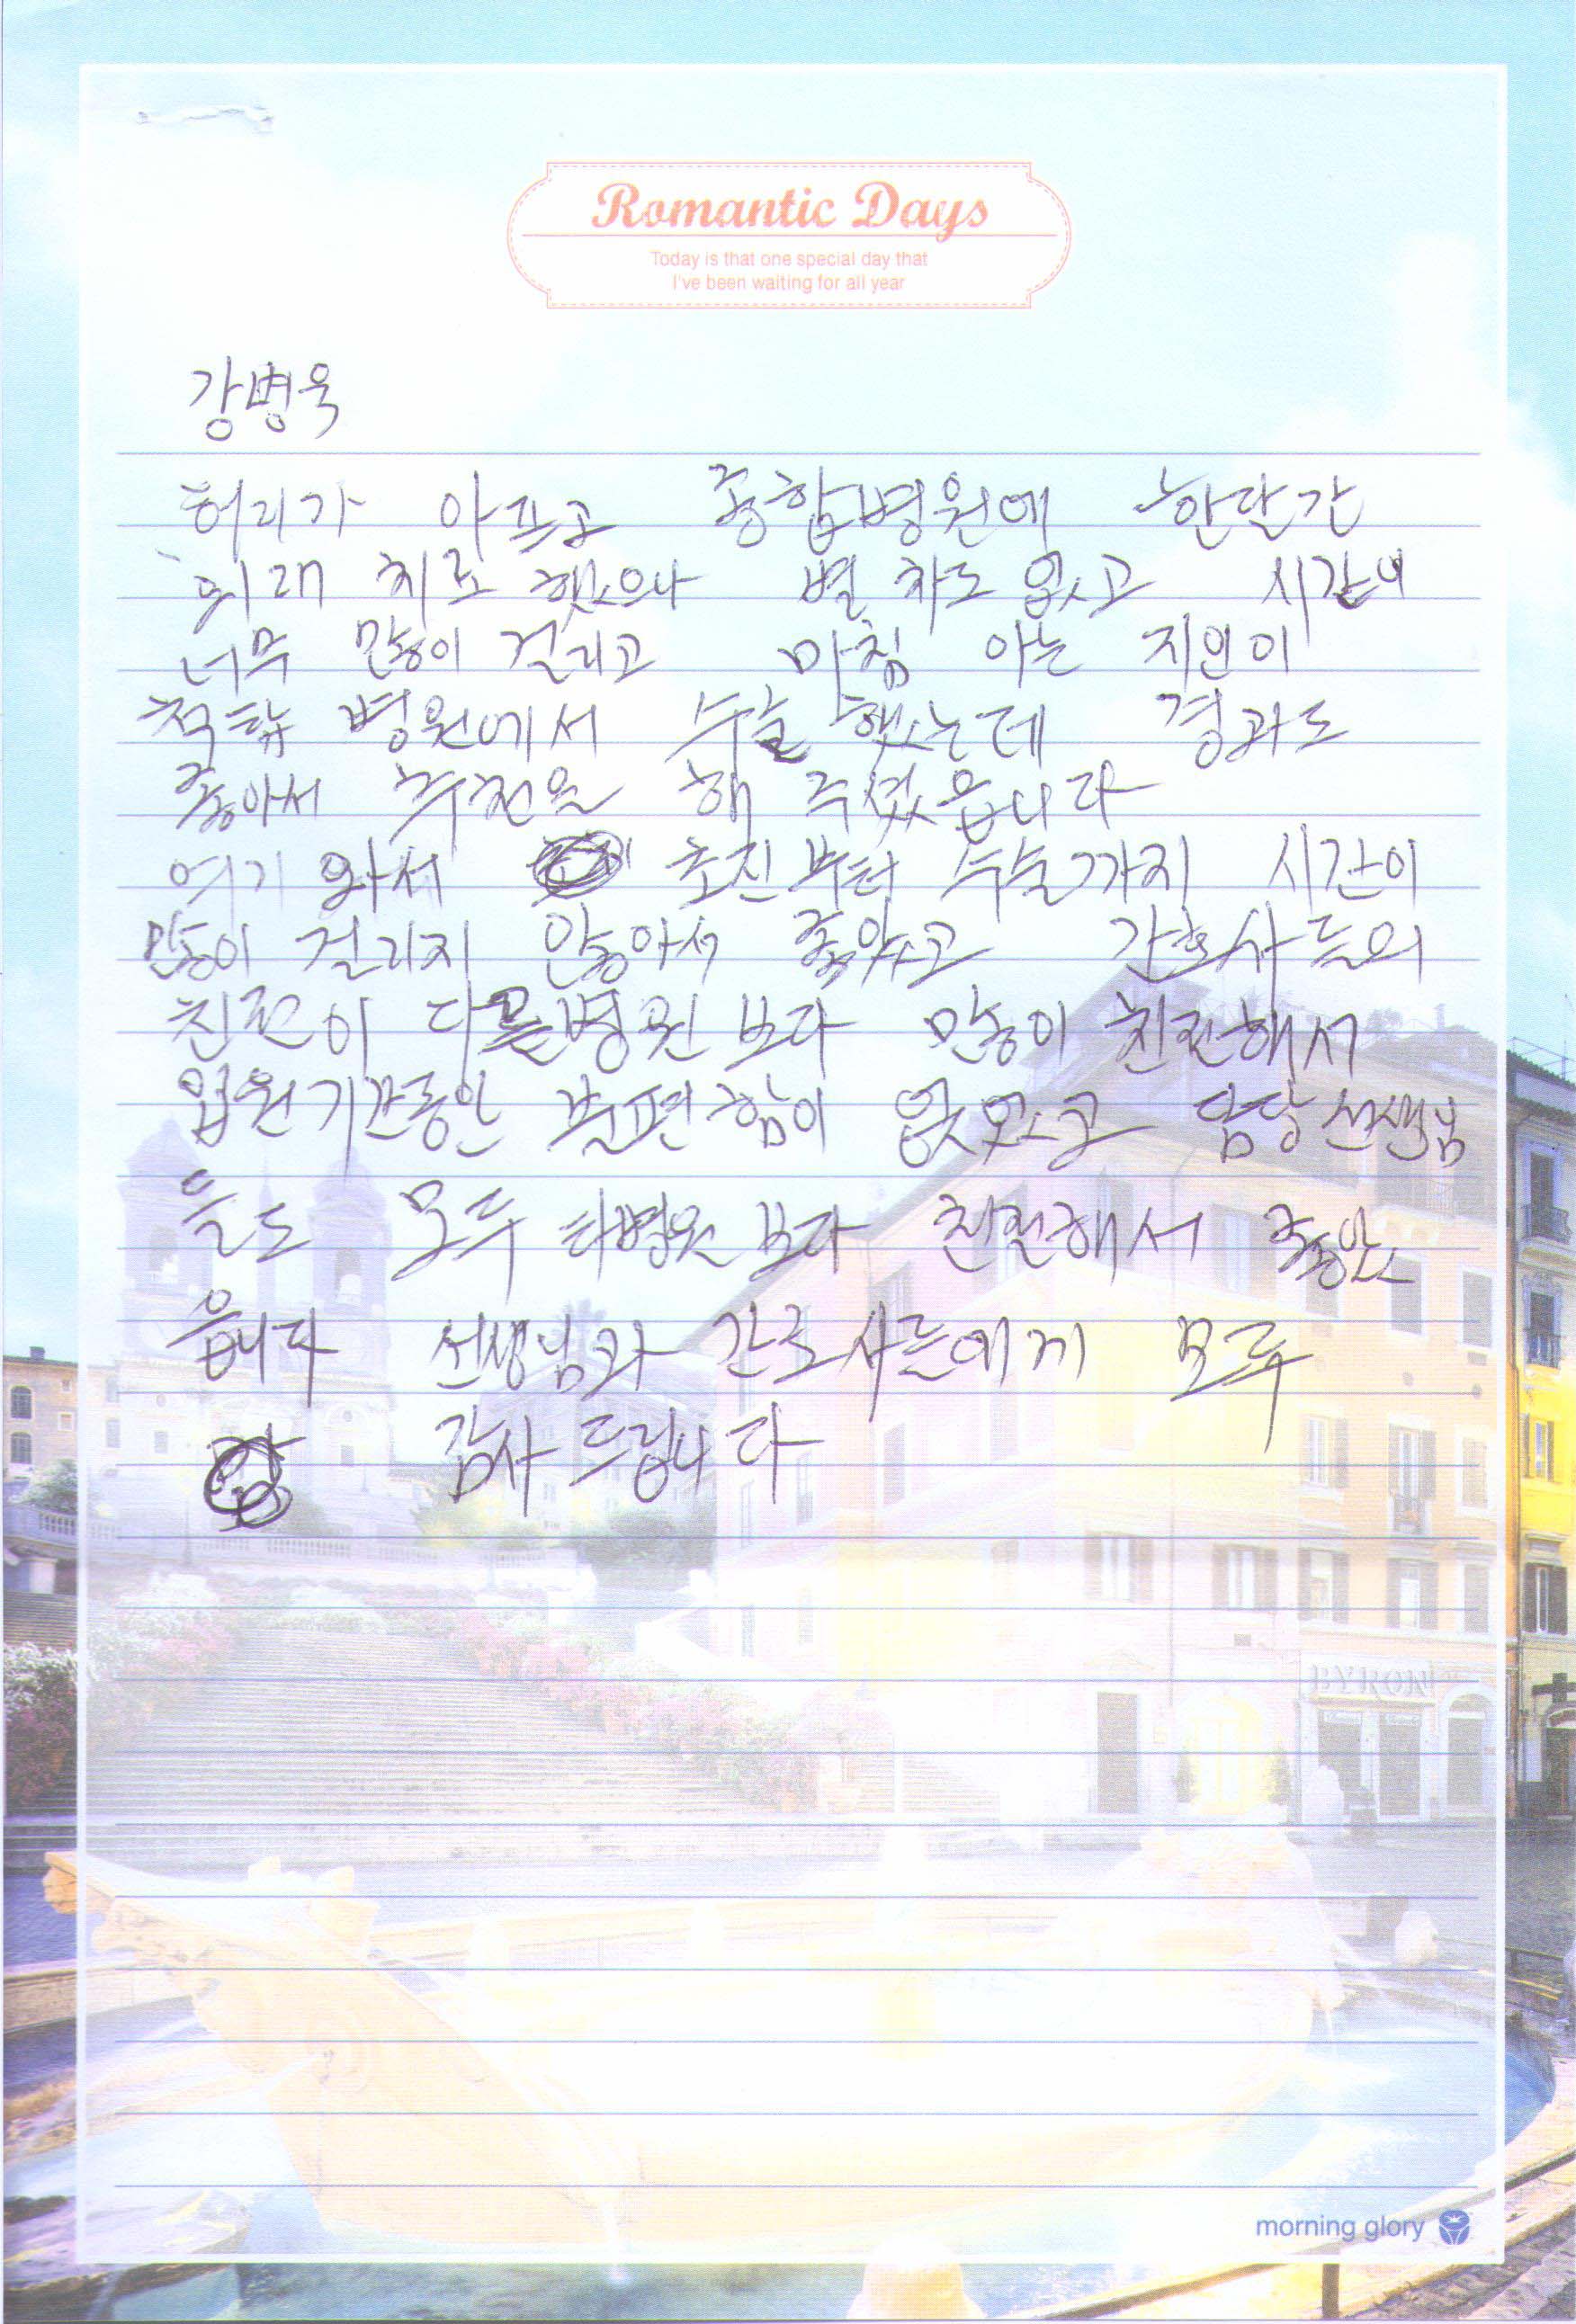 Romantic Days
Today is that one special day that
I've been waiting for all year
강병옥
허리가 아프고 종합병원에 한달간
외래 치료 했으나 별 차도 없고 시간이
너무 많이 걸리고 마침 아는 지인이
척탑 병원에서 수술 했는데 경과도
좋아서 추천을 해 주셨읍니다
여기 와서 초진부터 수술까지 시간이
많이 걸리지 않아서 좋았고 간호사들의
친절이 다른병원 보다 많이 친절해서
입원기간동안 불편함이 없었고 담당 선생님
들도 모두 타병원 보다 친절해서 좋았
읍니다 선생님과 간호사들에게 모두
감사 드립니다
BYRON
morning glory